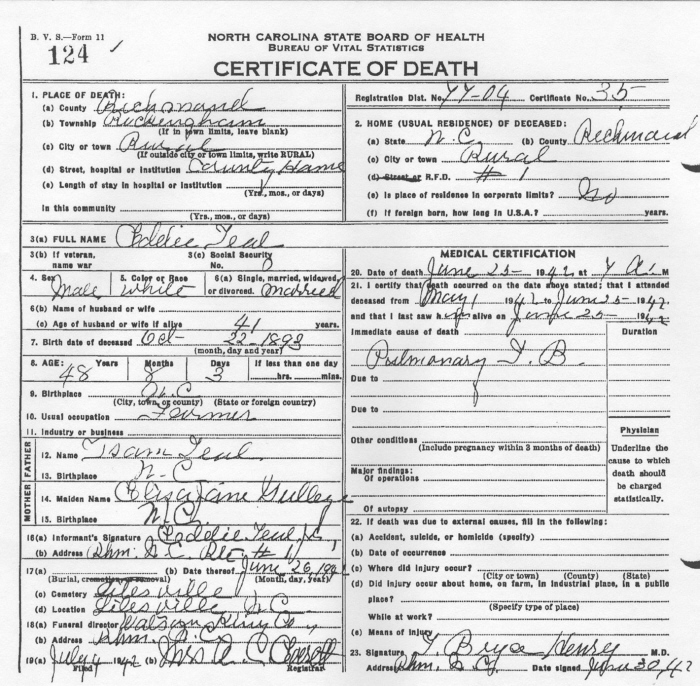 B. V. S.—Form 11
124
NORTH CAROLINA STATE BOARD OF HEALTH
BUREAU OF VITAL STATISTICS
CERTIFICATE OF DEATH
1. PLACE OF DEATH:
(a) County Richmond
(b) Township Rockingham
(If in town limits, leave blank)
(c) City or town Rural
(If outside city or town limits, write RURAL)
(d) Street, hospital or institution County Home
(e) Length of stay in hospital or institution
(Yrs., mos., or days)
In this community
(Yrs., mos., or days)
Registration Dist. No. 77-04 Certificate No. 35
2. HOME (USUAL RESIDENCE) OF DECEASED:
(a) State N.C. (b) County Richmond
(c) City or town Rural
(d) Street or R.F.D. #1
(e) Is place of residence in corporate limits? No
(f) If foreign born, how long in U.S.A.? years.
3(a) FULL NAME Peddie Teal
3(b) If veteran, name war
3(c) Social Security No. 0
4. Sex Male
5. Color or Race White
6(a) Single, married, widowed, or divorced. Married
6(b) Name of husband or wife
(c) Age of husband or wife if alive 41 years.
7. Birth date of deceased Oct- 22- 1893
(month, day and year)
8. AGE: Years Months Days If less than one day
48 8 3 hrs. mins.
9. Birthplace N.C.
(City, town, or county) (State or foreign country)
10. Usual occupation Farmer
11. Industry or business
FATHER
12. Name Isam Teal
13. Birthplace N.C.
MOTHER
14. Maiden Name Eliza Jane Gulledge
15. Birthplace N.C.
16(a) Informant's Signature Peddie Teal Jr.
(b) Address Rhm. N.C. Rt. #1
17(a) (b) Date thereof June 26, 194
(Burial, cremation or removal) (Month, day, year)
(c) Cemetery Lilesville
(d) Location Lilesville N.C.
18(a) Funeral director Watson King Co,
(b) Address Rhm. N.C.
19(a) July 4 1942 (b) Mrs A. C.
Filed Registrar
MEDICAL CERTIFICATION
20. Date of death June 25- 1942 at 7 A. M
21. I certify that death occurred on the date above stated; that I attended
deceased from May 1 1942 to June 25- 1942
and that I last saw him alive on June 25- 1942
Immediate cause of death Duration
Pulmonary T. B.
Due to
Due to
Other conditions
(Include pregnancy within 3 months of death)
Major findings:
Of operations
Of autopsy
Physician
Underline the cause to which death should be charged statistically.
22. If death was due to external causes, fill in the following:
(a) Accident, suicide, or homicide (specify)
(b) Date of occurrence
(c) Where did injury occur?
(City or town) (County) (State)
(d) Did injury occur about home, on farm, in industrial place, in a public
place?
(Specify type of place)
While at work?
(e) Means of injury
23. Signature T. Bryce Henry M.D.
Address Rhm. N.C. Date signed June 30, 42